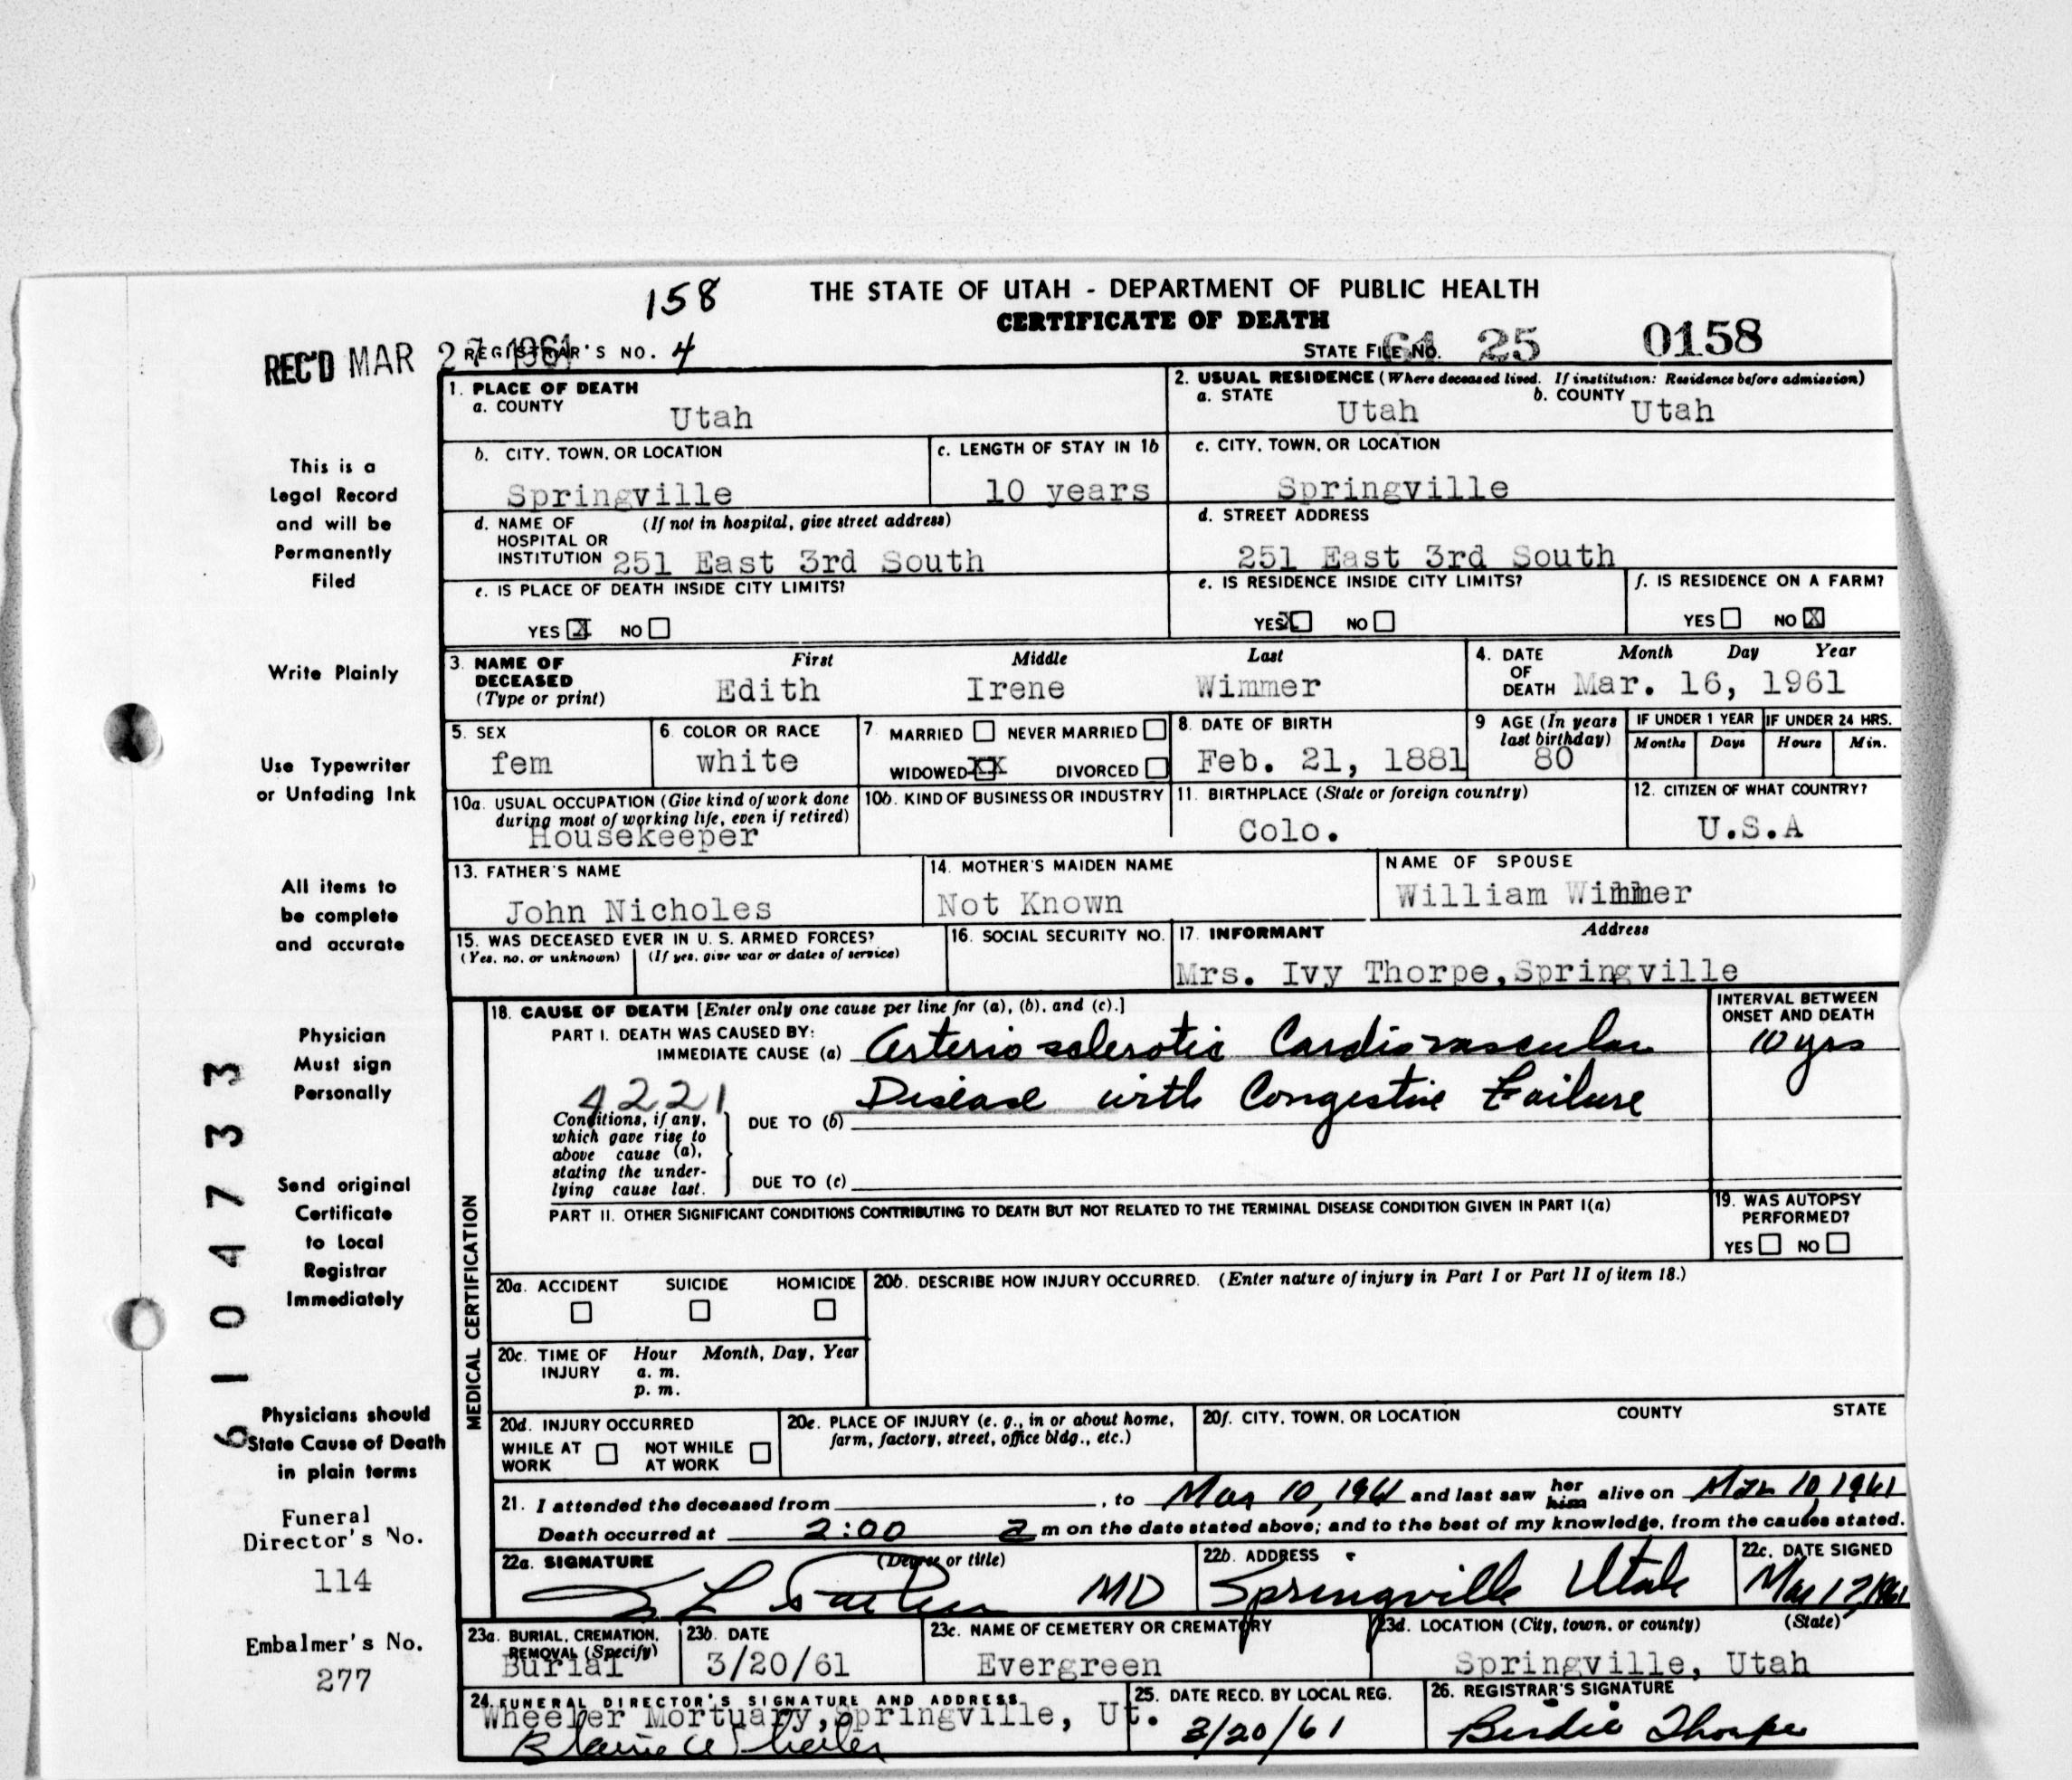 158
THE STATE OF UTAH - DEPARTMENT OF PUBLIC HEALTH
CERTIFICATE OF DEATH
REC'D MAR 27 1961
REGISTRAR'S NO. 4
STATE FILE NO. 61 25 0158
1. PLACE OF DEATH
a. COUNTY
Utah
2. USUAL RESIDENCE (Where deceased lived. If institution: Residence before admission)
a. STATE
Utah
b. COUNTY
Utah
b. CITY, TOWN, OR LOCATION
Springville
c. LENGTH OF STAY IN 1b
10 years
c. CITY, TOWN, OR LOCATION
Springville
d. NAME OF (If not in hospital, give street address)
HOSPITAL OR
INSTITUTION 251 East 3rd South
d. STREET ADDRESS
251 East 3rd South
e. IS PLACE OF DEATH INSIDE CITY LIMITS?
YES X NO
e. IS RESIDENCE INSIDE CITY LIMITS?
YES X NO
f. IS RESIDENCE ON A FARM?
YES NO X
3. NAME OF
DECEASED
(Type or print)
First Middle Last
Edith Irene Wimmer
4. DATE
OF
DEATH
Month Day Year
Mar. 16, 1961
5. SEX
fem
6. COLOR OR RACE
white
7. MARRIED NEVER MARRIED
WIDOWED XX DIVORCED
8. DATE OF BIRTH
Feb. 21, 1881
9 AGE (In years
last birthday)
80
IF UNDER 1 YEAR
Months Days
IF UNDER 24 HRS.
Hours Min.
10a. USUAL OCCUPATION (Give kind of work done
during most of working life, even if retired)
Housekeeper
10b. KIND OF BUSINESS OR INDUSTRY
11. BIRTHPLACE (State or foreign country)
Colo.
12. CITIZEN OF WHAT COUNTRY?
U.S.A
13. FATHER'S NAME
John Nicholes
14. MOTHER'S MAIDEN NAME
Not Known
NAME OF SPOUSE
William Wimmer
15. WAS DECEASED EVER IN U. S. ARMED FORCES?
(Yes, no, or unknown) (If yes, give war or dates of service)
16. SOCIAL SECURITY NO.
17. INFORMANT Address
Mrs. Ivy Thorpe, Springville
MEDICAL CERTIFICATION
18. CAUSE OF DEATH [Enter only one cause per line for (a), (b), and (c).]
PART I. DEATH WAS CAUSED BY:
IMMEDIATE CAUSE (a) Arteriosclerotic Cardiovascular
Disease with Congestive Failure
INTERVAL BETWEEN
ONSET AND DEATH
10 yrs
4221
Conditions, if any,
which gave rise to
above cause (a),
stating the under-
lying cause last.
DUE TO (b)
DUE TO (c)
PART II. OTHER SIGNIFICANT CONDITIONS CONTRIBUTING TO DEATH BUT NOT RELATED TO THE TERMINAL DISEASE CONDITION GIVEN IN PART I(a)
19. WAS AUTOPSY
PERFORMED?
YES NO
20a. ACCIDENT SUICIDE HOMICIDE
20b. DESCRIBE HOW INJURY OCCURRED. (Enter nature of injury in Part I or Part II of item 18.)
20c. TIME OF INJURY
Hour Month, Day, Year
a. m.
p. m.
20d. INJURY OCCURRED
WHILE AT WORK NOT WHILE AT WORK
20e. PLACE OF INJURY (e. g., in or about home,
farm, factory, street, office bldg., etc.)
20f. CITY, TOWN, OR LOCATION COUNTY STATE
21. I attended the deceased from , to Mar 10, 1961 and last saw her him alive on Mar 10, 1961
Death occurred at 2:00 a m on the date stated above; and to the best of my knowledge, from the causes stated.
22a. SIGNATURE (Degree or title)
MD
22b. ADDRESS
Springville Utah
22c. DATE SIGNED
Mar 17, 1961
23a. BURIAL, CREMATION,
REMOVAL (Specify)
Burial
23b. DATE
3/20/61
23c. NAME OF CEMETERY OR CREMATORY
Evergreen
23d. LOCATION (City, town, or county) (State)
Springville, Utah
24. FUNERAL DIRECTOR'S SIGNATURE AND ADDRESS
Wheeler Mortuary, Springville, Ut.
Blaine W Wheeler
25. DATE RECD. BY LOCAL REG.
3/20/61
26. REGISTRAR'S SIGNATURE
Birdie Thorpe
This is a
Legal Record
and will be
Permanently
Filed
Write Plainly
Use Typewriter
or Unfading Ink
All items to
be complete
and accurate
Physician
Must sign
Personally
Send original
Certificate
to Local
Registrar
Immediately
Physicians should
State Cause of Death
in plain terms
Funeral
Director's No.
114
Embalmer's No.
277
6104733